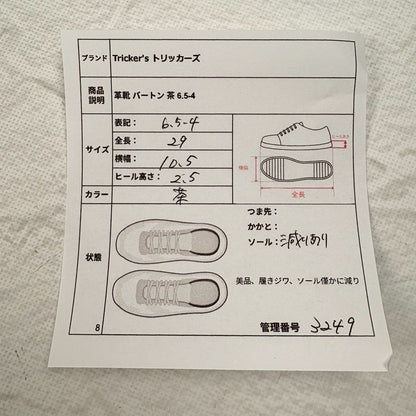 ブランド Tricker's トリッカーズ
商品説明 革靴 バートン 茶 6.5-4
サイズ
表記： 6.5-4
全長： 29
横幅： 10.5
ヒール高さ： 2.5
ヒール高さ
横幅
全長
カラー 茶
状態
つま先：
かかと：
ソール： 減りあり
美品、履きジワ、ソール僅かに減り
8 管理番号 3249